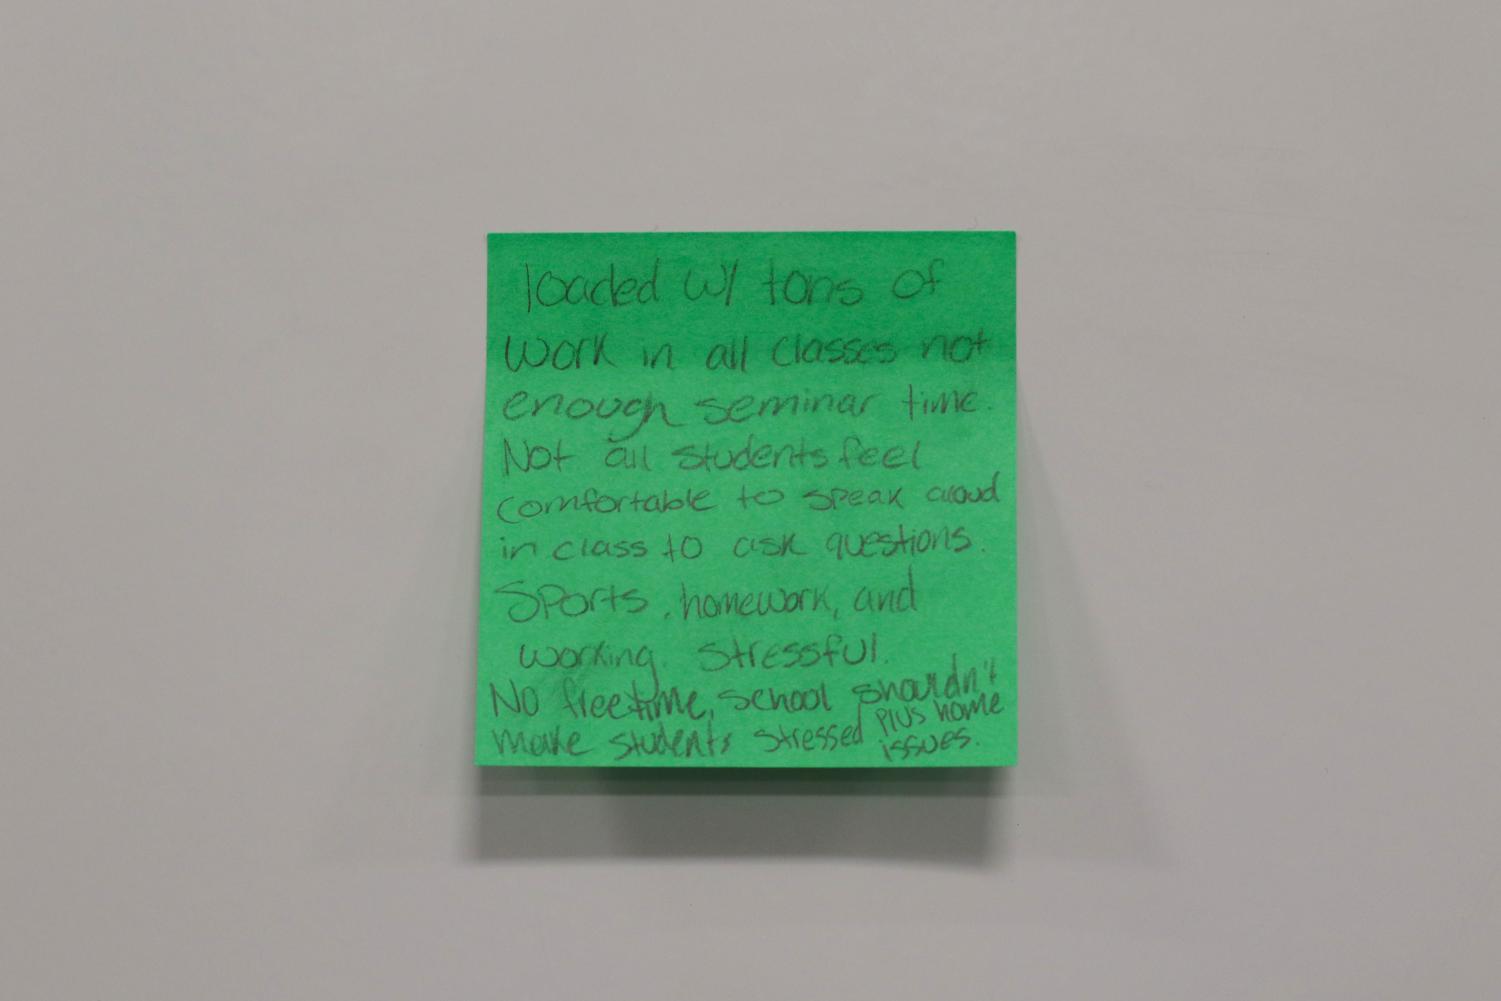 loaded w/ tons of
work in all classes not
enough seminar time.
Not all students feel
comfortable to speak aloud
in class to ask questions.
Sports, homework, and
working. stressful.
No freetime, school shouldn't
make students stressed plus home
issues.